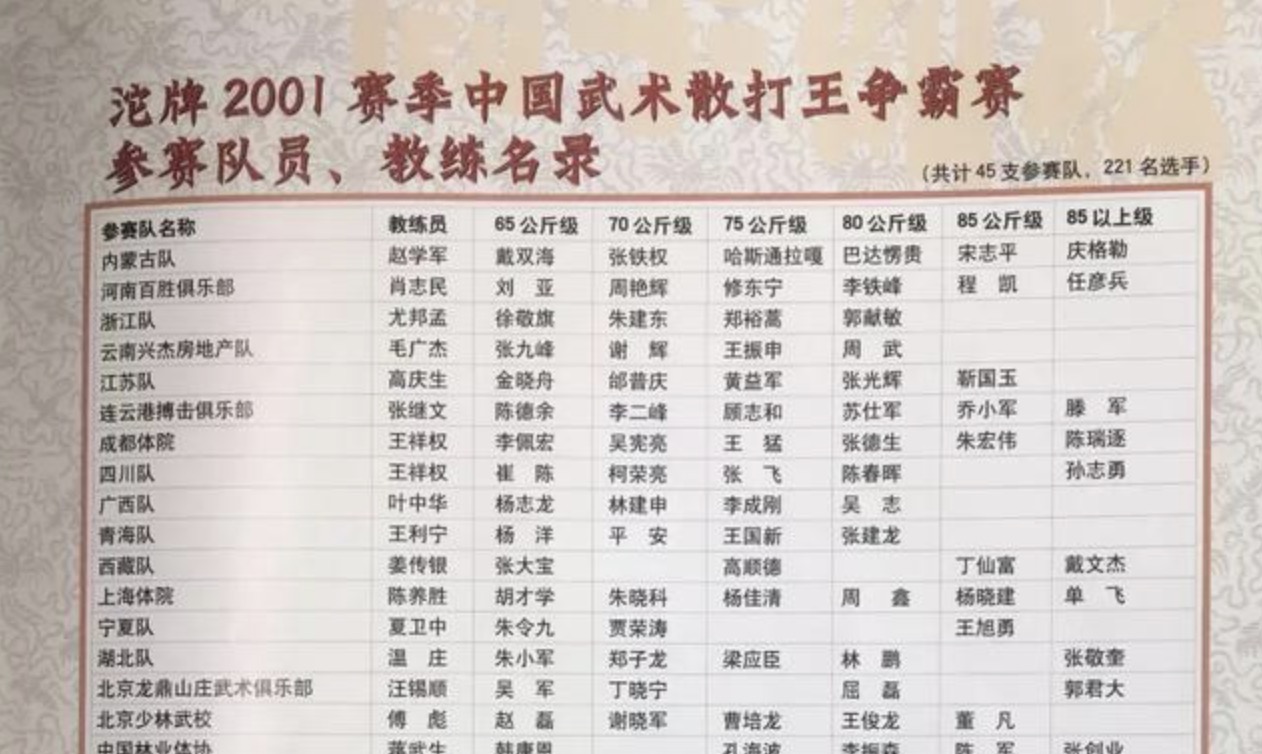 沱牌2001赛季中国武术散打王争霸赛
参赛队员、教练名录
（共计45支参赛队，221名选手）
参赛队名称 教练员 65公斤级 70公斤级 75公斤级 80公斤级 85公斤级 85以上级
内蒙古队 赵学军 戴双海 张铁权 哈斯通拉嘎 巴达愣贵 宋志平 庆格勒
河南百胜俱乐部 肖志民 刘 亚 周艳辉 修东宁 李铁峰 程 凯 任彦兵
浙江队 尤邦孟 徐敬旗 朱建东 郑裕蒿 郭献敏
云南兴杰房地产队 毛广杰 张九峰 谢 辉 王振申 周 武
江苏队 高庆生 金晓舟 邰普庆 黄益军 张光辉 靳国玉
连云港搏击俱乐部 张继文 陈德余 李二峰 顾志和 苏仕军 乔小军 滕 军
成都体院 王祥权 李佩宏 吴宪亮 王 猛 张德生 朱宏伟 陈瑞逐
四川队 王祥权 崔 陈 柯荣亮 张 飞 陈春晖 孙志勇
广西队 叶中华 杨志龙 林建申 李成刚 吴 志
青海队 王利宁 杨 洋 平 安 王国新 张建龙
西藏队 姜传银 张大宝 高顺德 丁仙富 戴文杰
上海体院 陈养胜 胡才学 朱晓科 杨佳清 周 鑫 杨晓建 单 飞
宁夏队 夏卫中 朱令九 贾荣涛 王旭勇
湖北队 温 庄 朱小军 郑子龙 梁应臣 林 鹏 张敬奎
北京龙鼎山庄武术俱乐部 汪锡顺 吴 军 丁晓宁 屈 磊 郭君大
北京少林武校 傅 彪 赵 磊 谢晓军 曹培龙 王俊龙 董 凡
中国林业体协 蒋武生 韩康恩 孔海波 李振森 陈 军 张创业